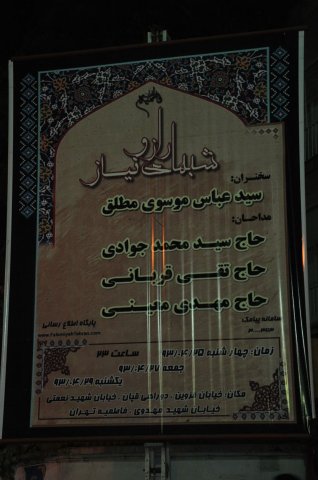 شبهای راز و نیاز
سخنران:
سید عباس موسوی مطلق
مداحان:
حاج سید محمد جوادی
حاج تقی قربانی
حاج مهدی معینی
پایگاه اطلاع رسانی
سامانه پیامک:
زمان: چهار شنبه ۹۳/۰۴/۲۵ ساعت ۲۳
جمعه ۹۳/۰۴/۲۷
یکشنبه ۹۳/۰۴/۲۹
مکان: خیابان قزوین، دوراهی قپان، خیابان شهید نعمتی
خیابان شهید مهدوی، فاطمیه تهران